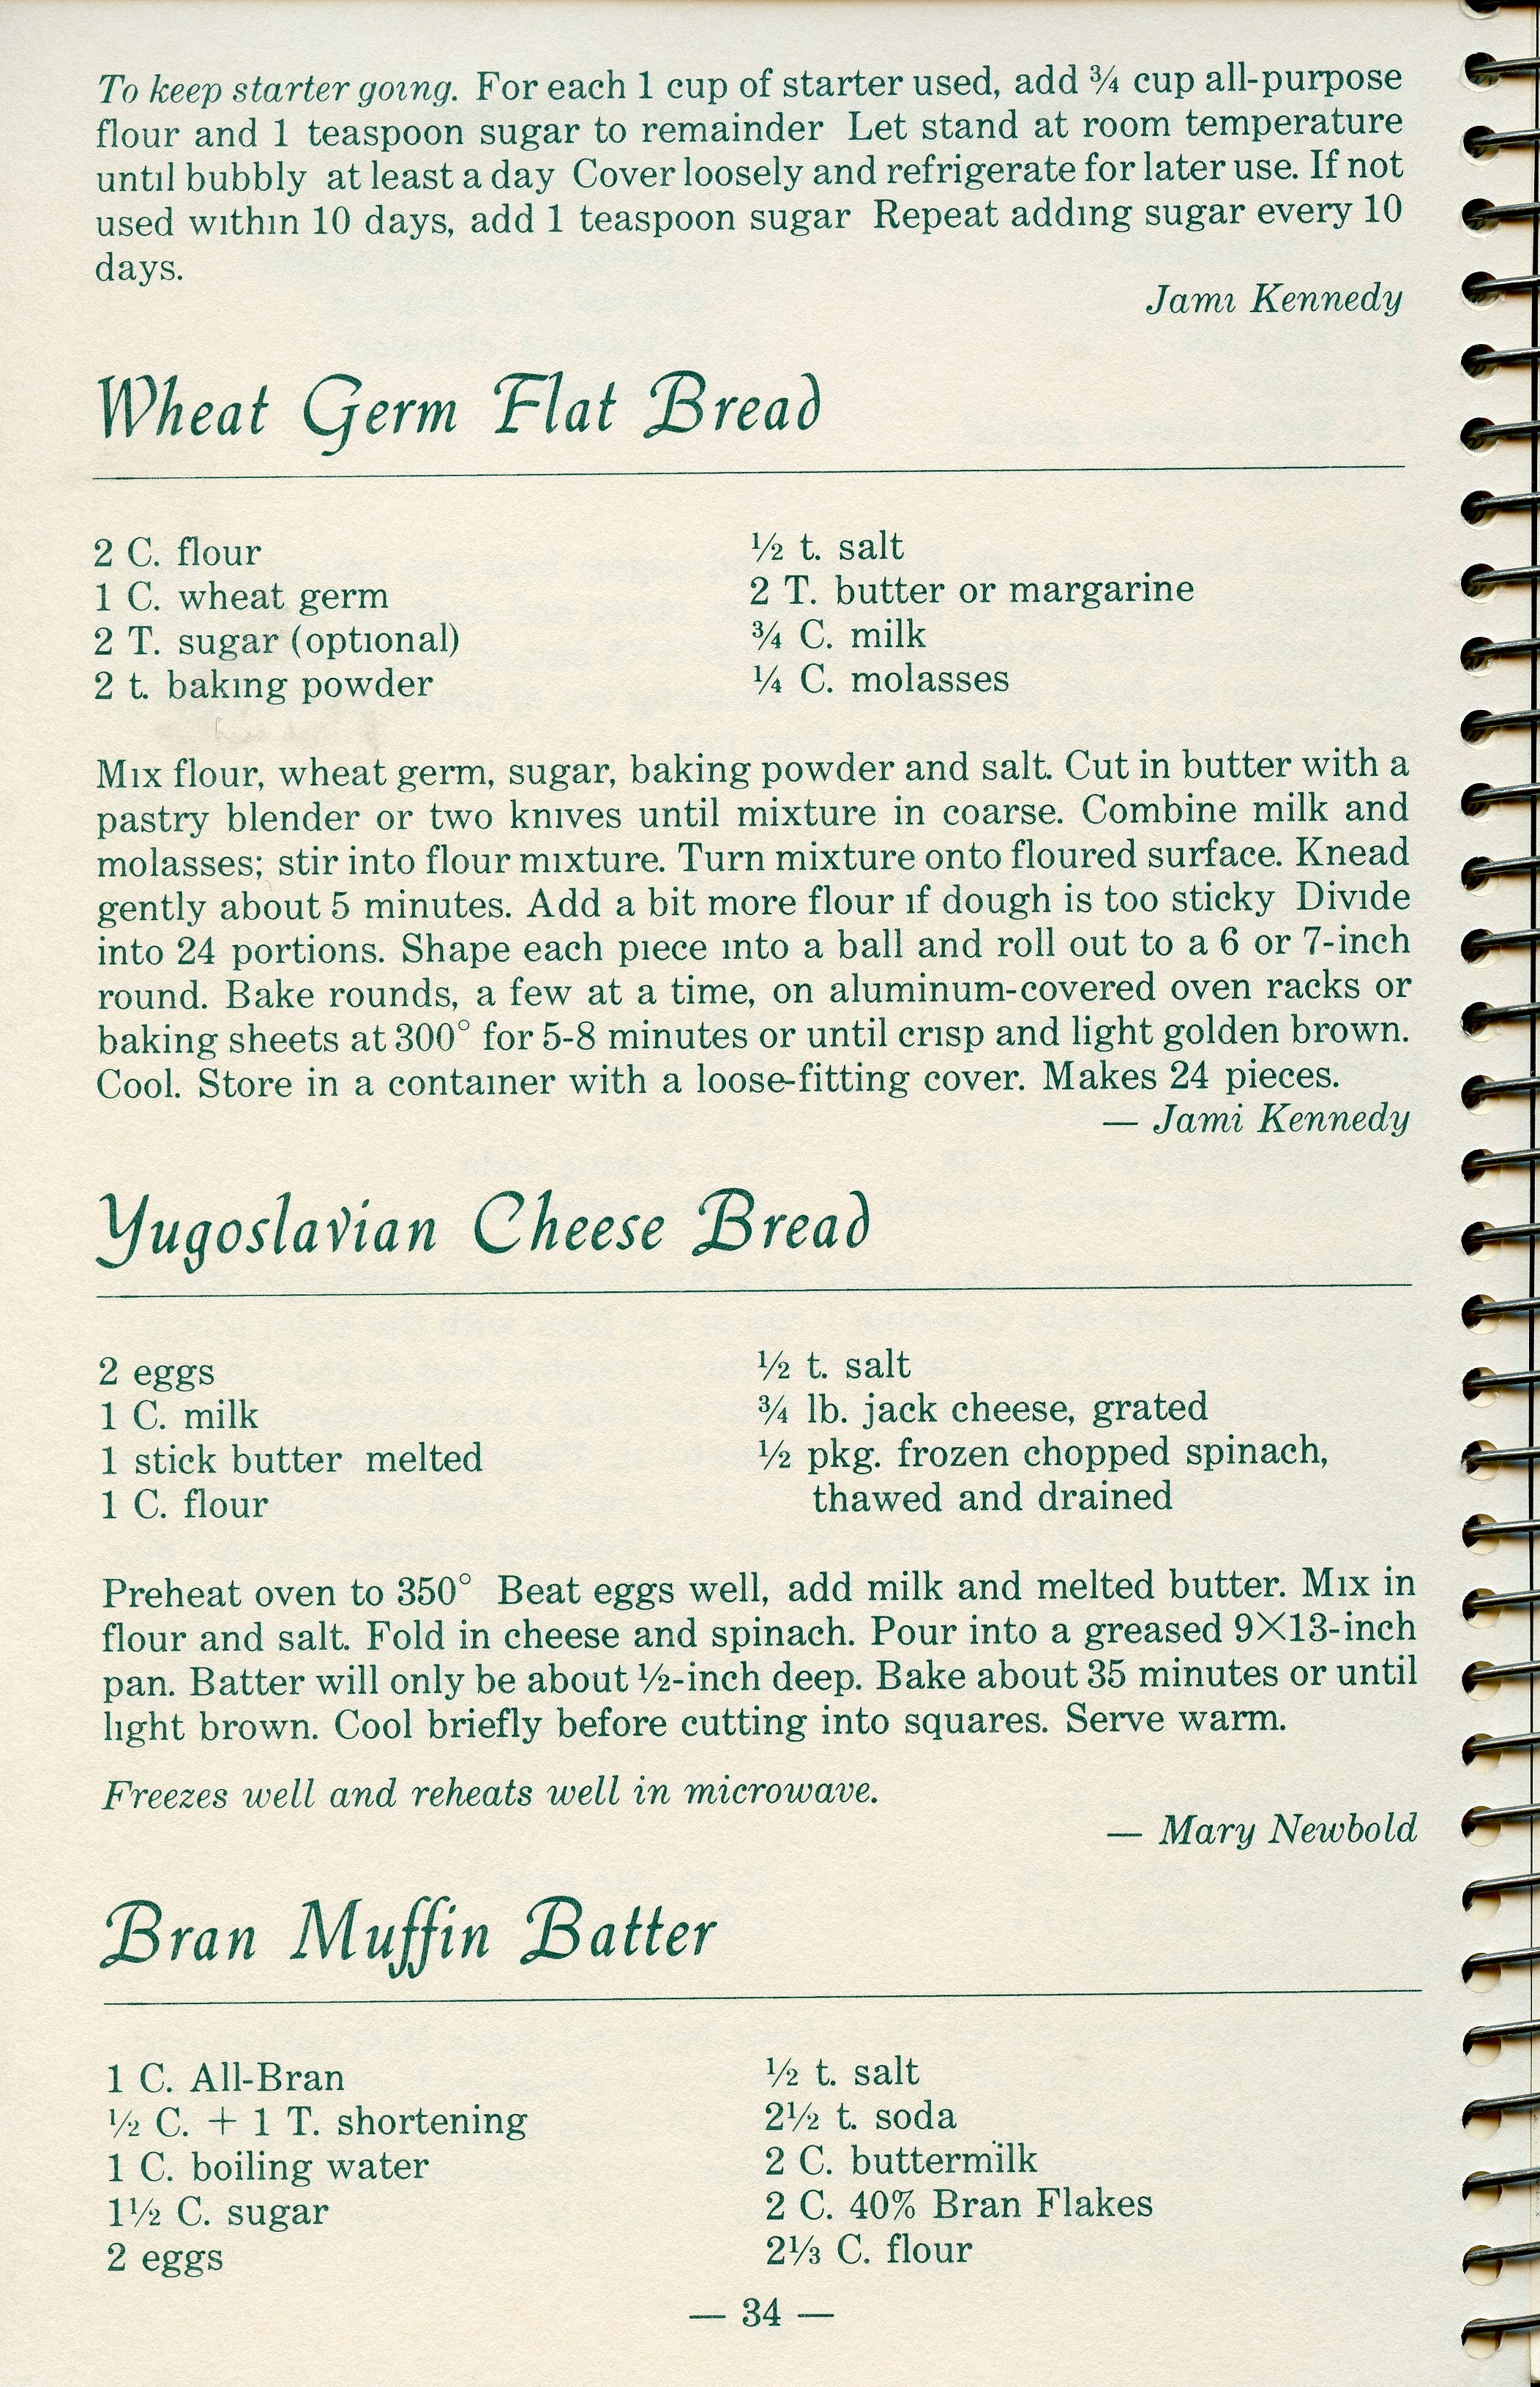 To keep starter going. For each 1 cup of starter used, add ¾ cup all-purpose
flour and 1 teaspoon sugar to remainder Let stand at room temperature
until bubbly at least a day Cover loosely and refrigerate for later use. If not
used within 10 days, add 1 teaspoon sugar Repeat adding sugar every 10
days.
Jami Kennedy
Wheat Germ Flat Bread
2 C. flour
1 C. wheat germ
2 T. sugar (optional)
2 t. baking powder
½ t. salt
2 T. butter or margarine
¾ C. milk
¼ C. molasses
Mix flour, wheat germ, sugar, baking powder and salt. Cut in butter with a
pastry blender or two knives until mixture in coarse. Combine milk and
molasses; stir into flour mixture. Turn mixture onto floured surface. Knead
gently about 5 minutes. Add a bit more flour if dough is too sticky Divide
into 24 portions. Shape each piece into a ball and roll out to a 6 or 7-inch
round. Bake rounds, a few at a time, on aluminum-covered oven racks or
baking sheets at 300° for 5-8 minutes or until crisp and light golden brown.
Cool. Store in a container with a loose-fitting cover. Makes 24 pieces.
— Jami Kennedy
Yugoslavian Cheese Bread
2 eggs
1 C. milk
1 stick butter melted
1 C. flour
½ t. salt
¾ lb. jack cheese, grated
½ pkg. frozen chopped spinach,
thawed and drained
Preheat oven to 350° Beat eggs well, add milk and melted butter. Mix in
flour and salt. Fold in cheese and spinach. Pour into a greased 9×13-inch
pan. Batter will only be about ½-inch deep. Bake about 35 minutes or until
light brown. Cool briefly before cutting into squares. Serve warm.
Freezes well and reheats well in microwave.
— Mary Newbold
Bran Muffin Batter
1 C. All-Bran
½ C. + 1 T. shortening
1 C. boiling water
1½ C. sugar
2 eggs
½ t. salt
2½ t. soda
2 C. buttermilk
2 C. 40% Bran Flakes
2⅓ C. flour
— 34 —